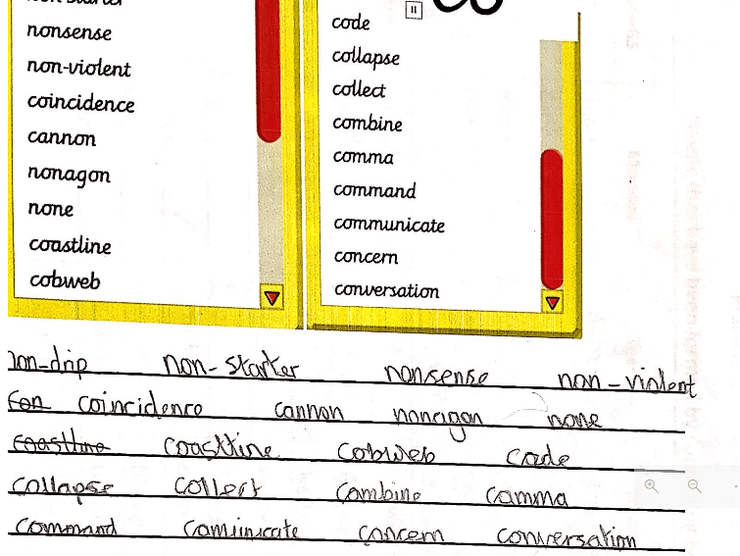 nonsense
non-violent
coincidence
cannon
nonagon
none
coastline
cobweb
code
collapse
collect
combine
comma
command
communicate
concern
conversation
non-drip non-starter nonsense non-violent
con coincidence cannon nonagon none
coastline coastline cobweb code
collapse collect combine comma
command comunicate concern conversation